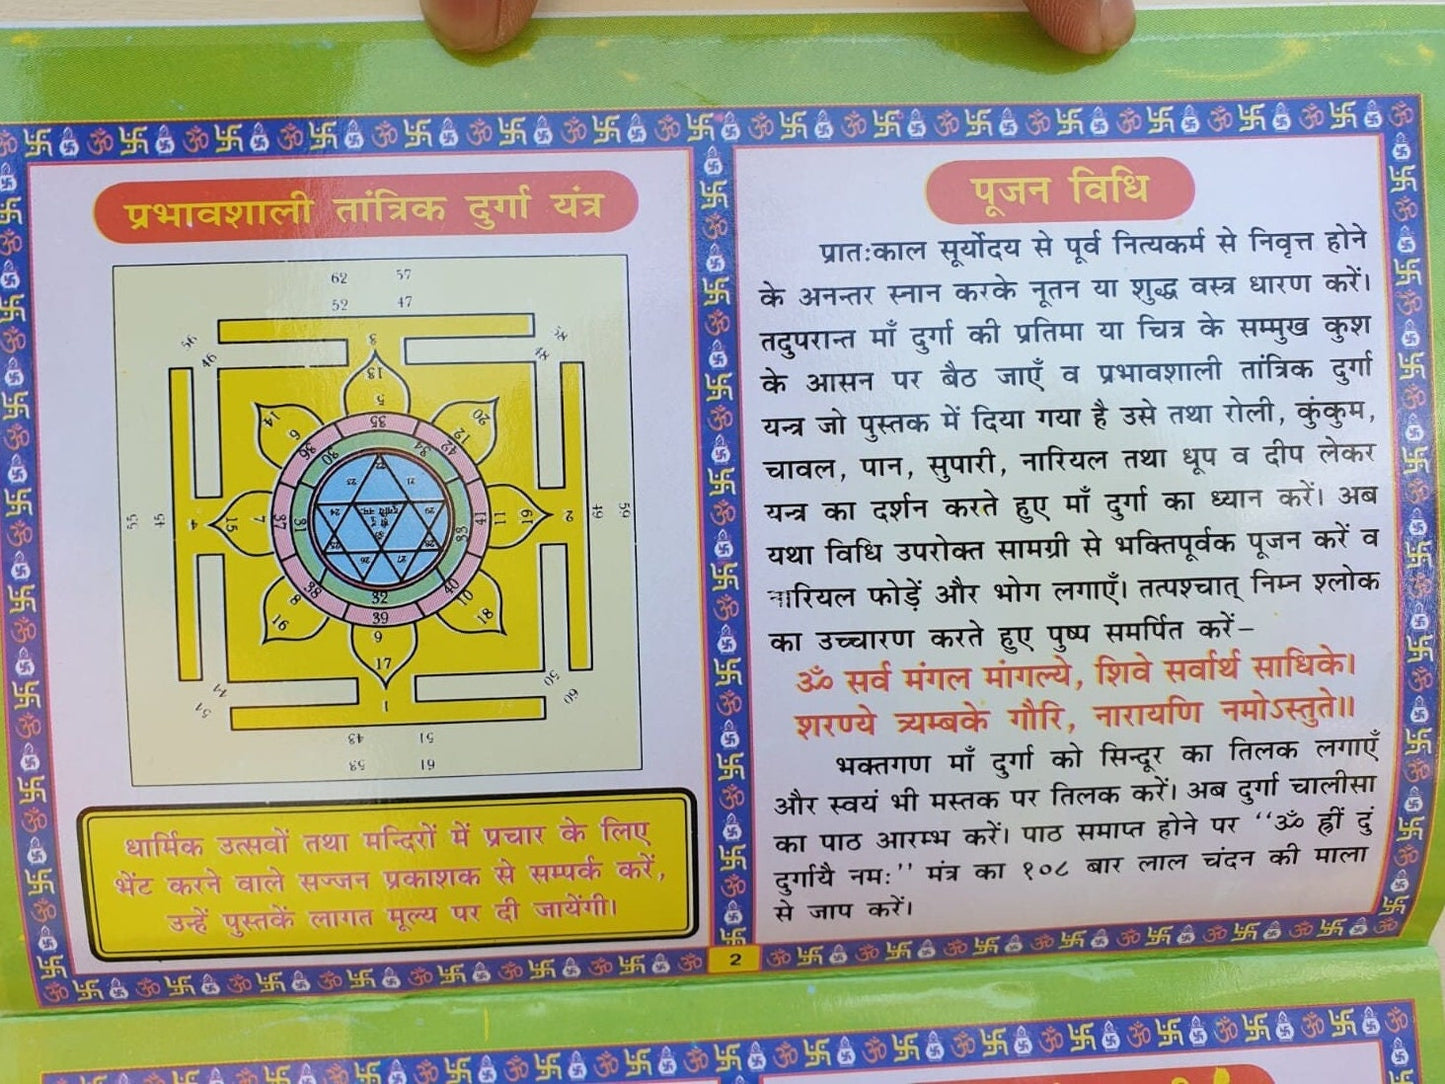 प्रभावशाली तांत्रिक दुर्गा यंत्र
62 57
52 47
56 46
3
13
5
35
14
6
36
30
20
12
42
34
23 21
24 29
4 15 7 37 31
33 41 11 19 2
55 45
49 59
25 28
26 27
38
8
16
32
39
9
17
1
40
10
18
50
60
43 51
53 61
धार्मिक उत्सवों तथा मन्दिरों में प्रचार के लिए
भेंट करने वाले सज्जन प्रकाशक से सम्पर्क करें,
उन्हें पुस्तकें लागत मूल्य पर दी जायेंगी।
पूजन विधि
प्रातःकाल सूर्योदय से पूर्व नित्यकर्म से निवृत्त होने
के अनन्तर स्नान करके नूतन या शुद्ध वस्त्र धारण करें।
तदुपरान्त माँ दुर्गा की प्रतिमा या चित्र के सम्मुख कुश
के आसन पर बैठ जाएँ व प्रभावशाली तांत्रिक दुर्गा
यन्त्र जो पुस्तक में दिया गया है उसे तथा रोली, कुंकुम,
चावल, पान, सुपारी, नारियल तथा धूप व दीप लेकर
यन्त्र का दर्शन करते हुए माँ दुर्गा का ध्यान करें। अब
यथा विधि उपरोक्त सामग्री से भक्तिपूर्वक पूजन करें व
नारियल फोड़ें और भोग लगाएँ। तत्पश्चात् निम्न श्लोक
का उच्चारण करते हुए पुष्प समर्पित करें–
ॐ सर्व मंगल मांगल्ये, शिवे सर्वार्थ साधिके।
शरण्ये त्र्यम्बके गौरि, नारायणि नमोऽस्तुते॥
भक्तगण माँ दुर्गा को सिन्दूर का तिलक लगाएँ
और स्वयं भी मस्तक पर तिलक करें। अब दुर्गा चालीसा
का पाठ आरम्भ करें। पाठ समाप्त होने पर ‘‘ॐ ह्रीं दुं
दुर्गायै नमः’’ मंत्र का १०८ बार लाल चंदन की माला
से जाप करें।
2